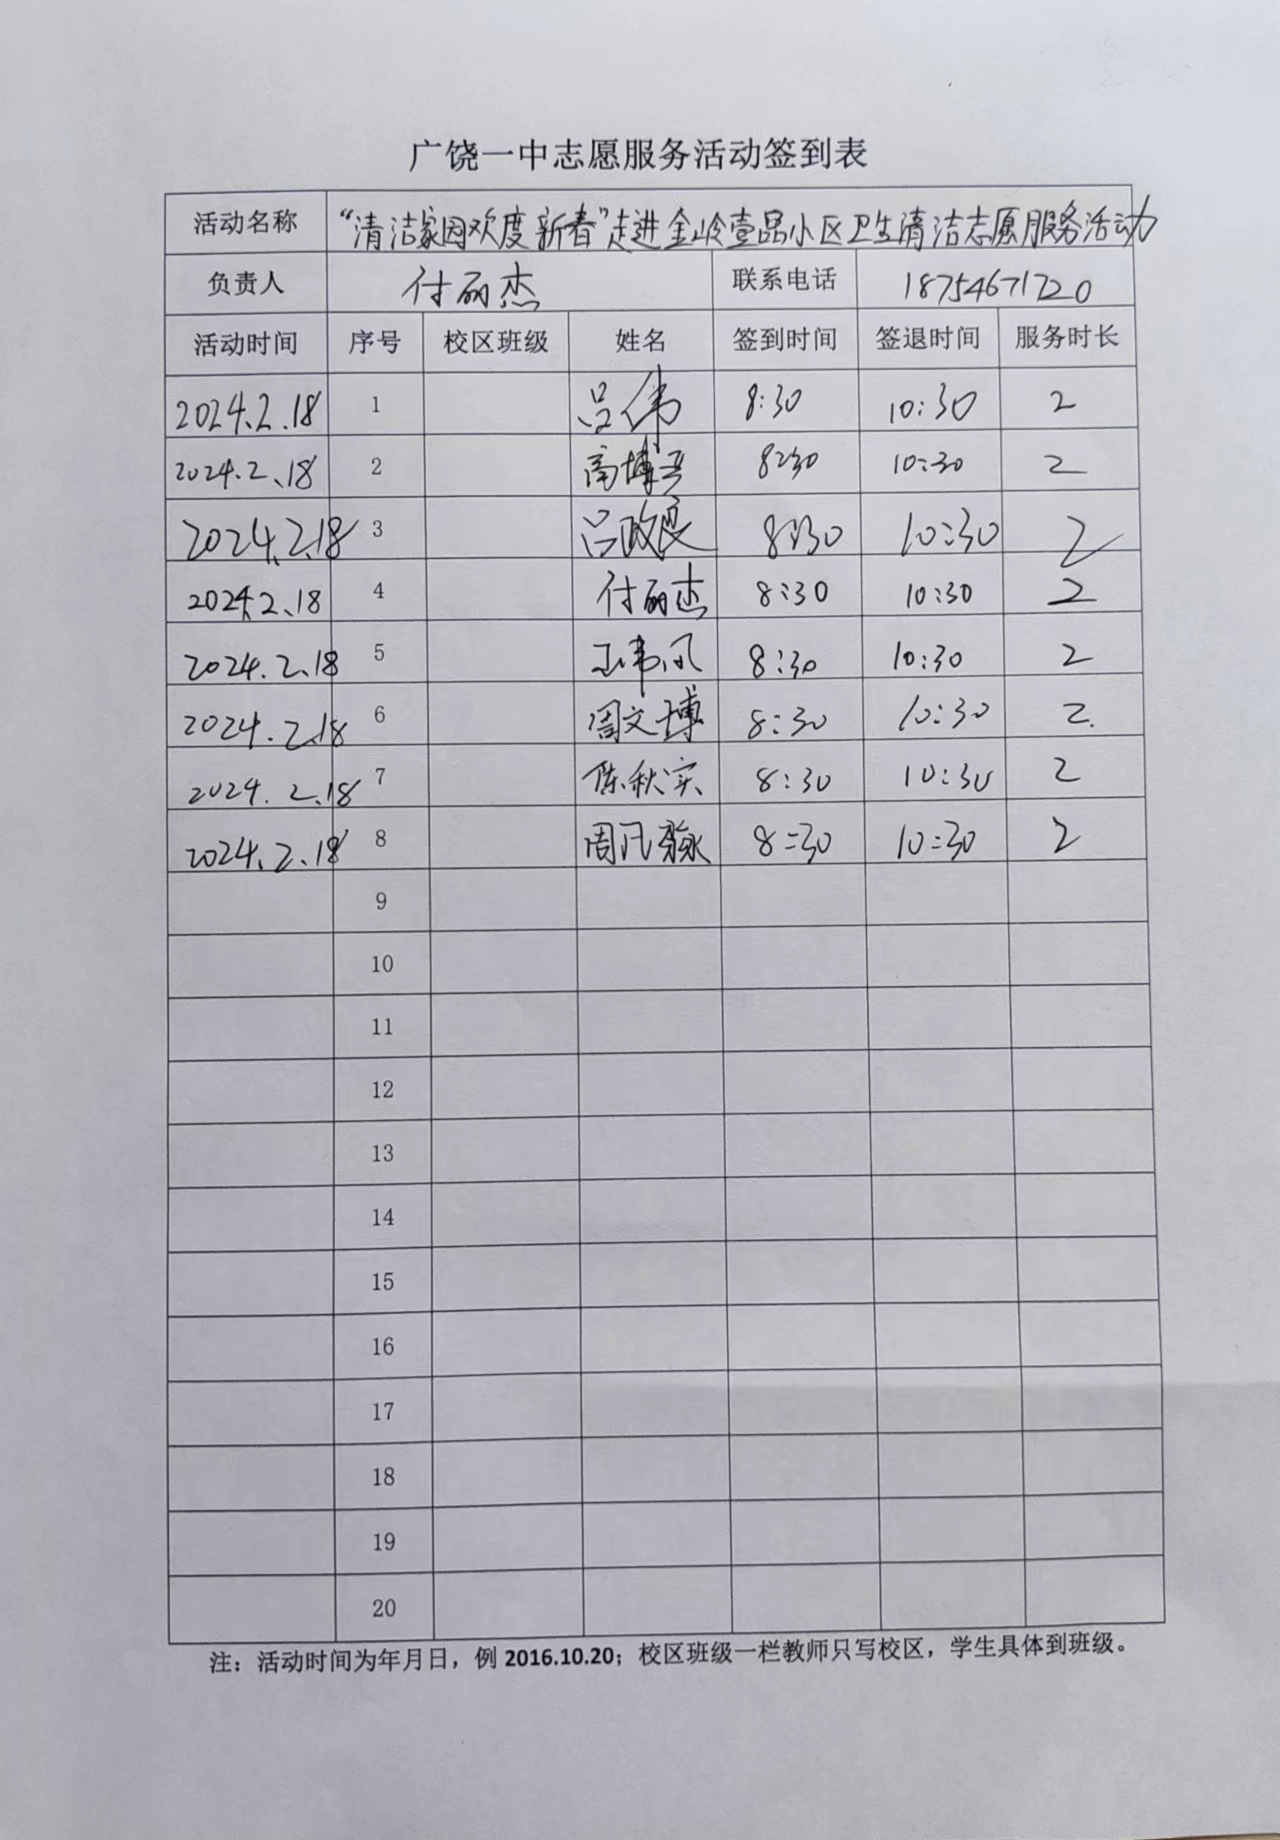 广饶一中志愿服务活动签到表
活动名称 “清洁家园欢度新春”走进金岭壹品小区卫生清洁志愿服务活动
负责人 付丽杰 联系电话 18754671720
活动时间 序号 校区班级 姓名 签到时间 签退时间 服务时长
2024.2.18 1 吕伟 8:30 10:30 2
2024.2.18 2 高博 8:30 10:30 2
2024.2.18 3 吕政良 8:30 10:30 2
2024.2.18 4 付丽杰 8:30 10:30 2
2024.2.18 5 8:30 10:30 2
2024.2.18 6 周文博 8:30 10:30 2.
2024.2.18 7 陈秋实 8:30 10:30 2
2024.2.18 8 周 8:30 10:30 2
9
10
11
12
13
14
15
16
17
18
19
20
注：活动时间为年月日，例 2016.10.20；校区班级一栏教师只写校区，学生具体到班级。